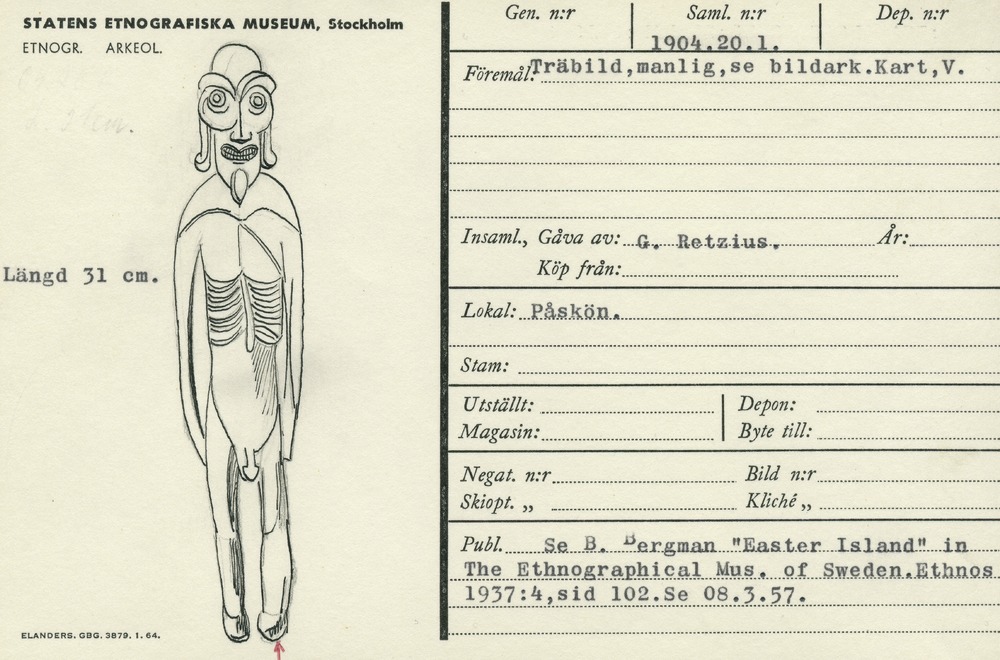 STATENS ETNOGRAFISKA MUSEUM, Stockholm
ETNOGR. ARKEOL.
Längd 31 cm.
ELANDERS. GBG. 3879. 1. 64.
Gen. n:r Saml. n:r Dep. n:r
1904.20.1.
Föremål: Träbild,manlig,se bildark.Kart,V.
Insaml., Gåva av: G. Retzius. År:
Köp från:
Lokal: Påskön.
Stam:
Utställt: Depon:
Magasin: Byte till:
Negat. n:r Bild n:r
Skiopt. „ Kliché „
Publ. Se B. Bergman "Easter Island" in
The Ethnographical Mus. of Sweden.Ethnos
1937:4,sid 102.Se 08.3.57.